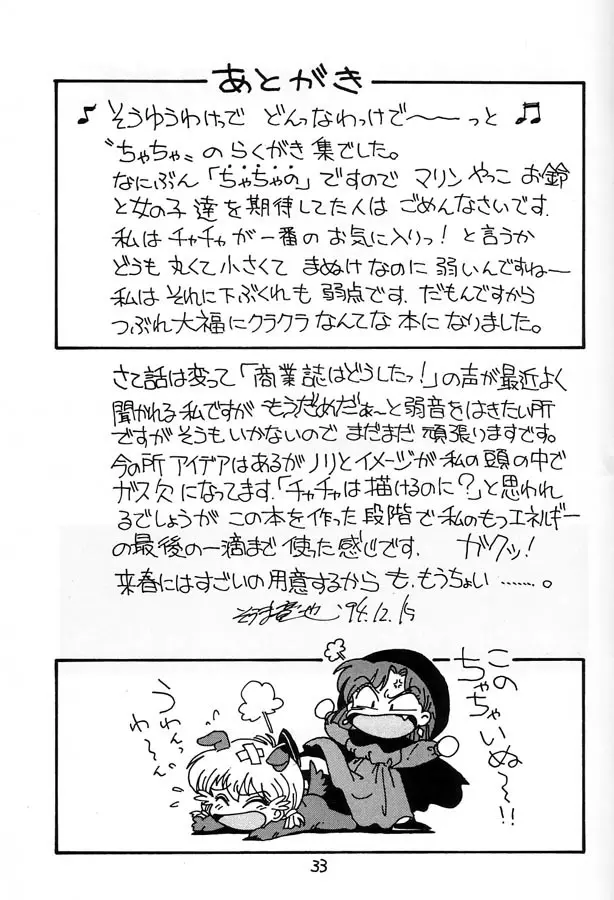 あとがき
♪そうゆうわけっで どんっなわっけで〜〜っと♫
〝ちゃちゃ〟のらくがき集でした。
なにぶん「ちゃちゃの」ですので マリン やっこ お鈴
と女の子達を期待してた人は ごめんなさいです.
私は チャチャが一番の お気に入りっ！と言うか
どうも 丸くて小さくて まぬけなのに 弱いんですね〜
私は それに下ぶくれも 弱点です. だもんですから
つぶれ大福にクラクラ なんてな 本に なりました。
さて話は変って「商業誌はどうしたっ！」の声が最近よく
聞かれる私ですが もうだめだぁ〜と弱音をはきたい所
ですが そうも いかないので まだまだ 頑張りますです。
今の所 アイデアはあるが ノリとイメージが 私の頭の中で
ガス欠になってます.「チャチャは描けるのに？」と思われ
るでしょうが この本を作った段階で 私のもつエネルギー
の最後の一滴まで 使った感じです. ガクッ！
来春にはすごいの用意するから も、もうちょい……。
'94.12.15
このちゃちゃいぬ〜〜!!
うわんっわ〜〜ん
33